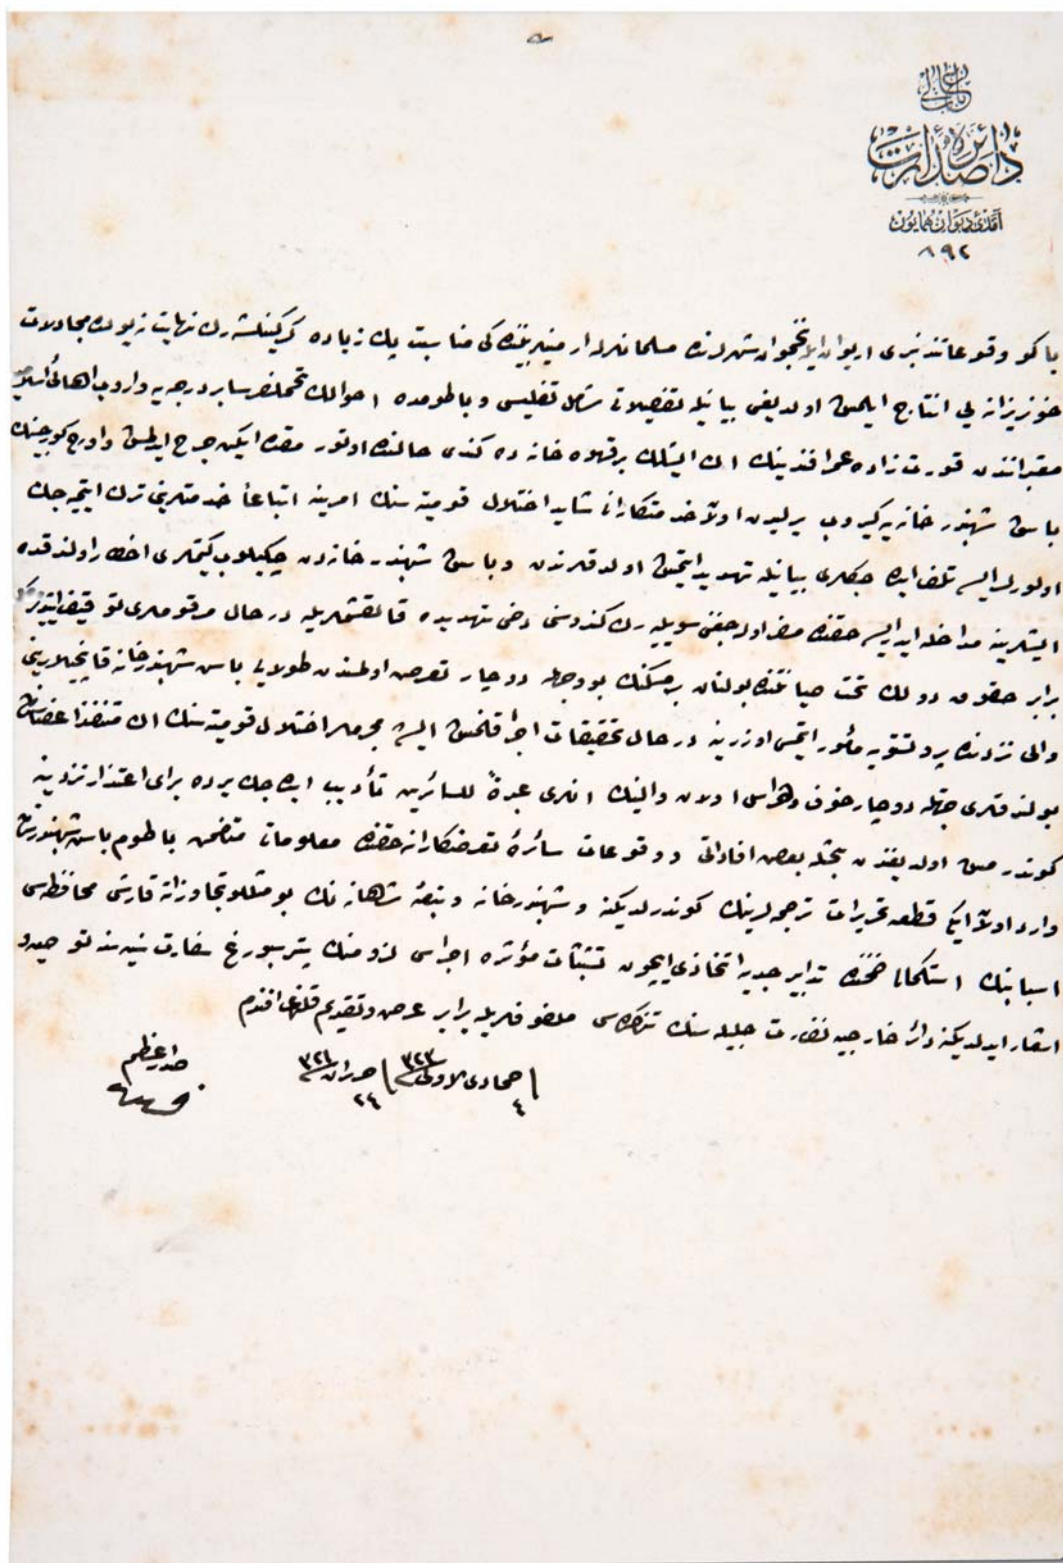 باب عالی
دائرهٔ صدارت
آمدئ ديوان همايون
٨٩٢
باكو وقوعاتندنبری اريوان ايله نخجوان شهرلرنده مسلمانلرله ارمنيلر بيننده كی مناسبت پك زياده كركينلشه رك نهايت يولده مجادلات
خونريزانه يی انتاج ايلمش اولديغی بيانيله تفصيلاتی شامل تفليس و باطومده احوالك تحملفرسا بر درجه يه واروب اهالئ اسلاميه
معتبراندن قورت زاده عمر افندينك الك ايشلك بر قهوه خانه ده كندی حالنده اوتورمقده ايكن جرح ايدلمش و اوچ كورجينك
باش شهبندرخانه يه كيروب اولا خدمتكارانی شايد اختلال قوميته سنك امرينه اتباعا خدمتلرينی ترك ايتميه جك
اولورلر ايسه تلف ايده جكلری بيانيله تهديد ايتمش اولدقلرندن و باش شهبندر خانه دن چيكيلوب كيتملری اخطار اولندقده
ايشلرينه مداخله ايدر ايسه حقنده مضر اوله جغنی سويليه رك كندوسنی دخی تهديده قالقشملريله درحال مرقوملری توقيف ايتديرمكله
برابر حقوق دولك تحت صيانتنده بولنان بر مسكنك بو وجهله دوچار تعرض اولمسندن طولايی باش شهبندرخانه قاپيجيلرينی
والی نزدنده پروتستويه مأمور ايتمسی اوزرينه درحال تحقيقات اجرا قلنمش ايسه ده مجرملر اختلال قوميته سنك الك متنفذ اعضاسندن
بولندقلری جهتله دوچار خوف و هراس اولان والينك انلری عبرةً للسائرين تأديب ايده جك يرده برای اعتذار نزدينه
كوندرمش اولديغندن بحثله بعض افاداتی و وقوعات سائرۀ تعرضكارانه حقنده معلوماتی متضمن باطوم باش شهبندرندن
وارد اولان ايكی قطعه تحريرات ترجمه لرينك كوندرلديكنه و شهبندرخانه و تبعۀ شاهانه نك بو مثللو تجاوزاته قارشی محافظه سی
اسبابنك استكمالی ضمننده تدابير جديه اتخاذی ايچون تشبثات مؤثره اجراسی لزومنك پترسبورغ سفارت سنيه سنه توصيه و
اشعار ايدلديكنه دائر خارجيه نظارت جليله سنك تذكره سی ملفوفلريله برابر عرض و تقديم قلنمغله افندم
٤ جمادی الاولی ٣٢٣ ٢٤ حزيران ٣٢١
صدراعظم
فريد